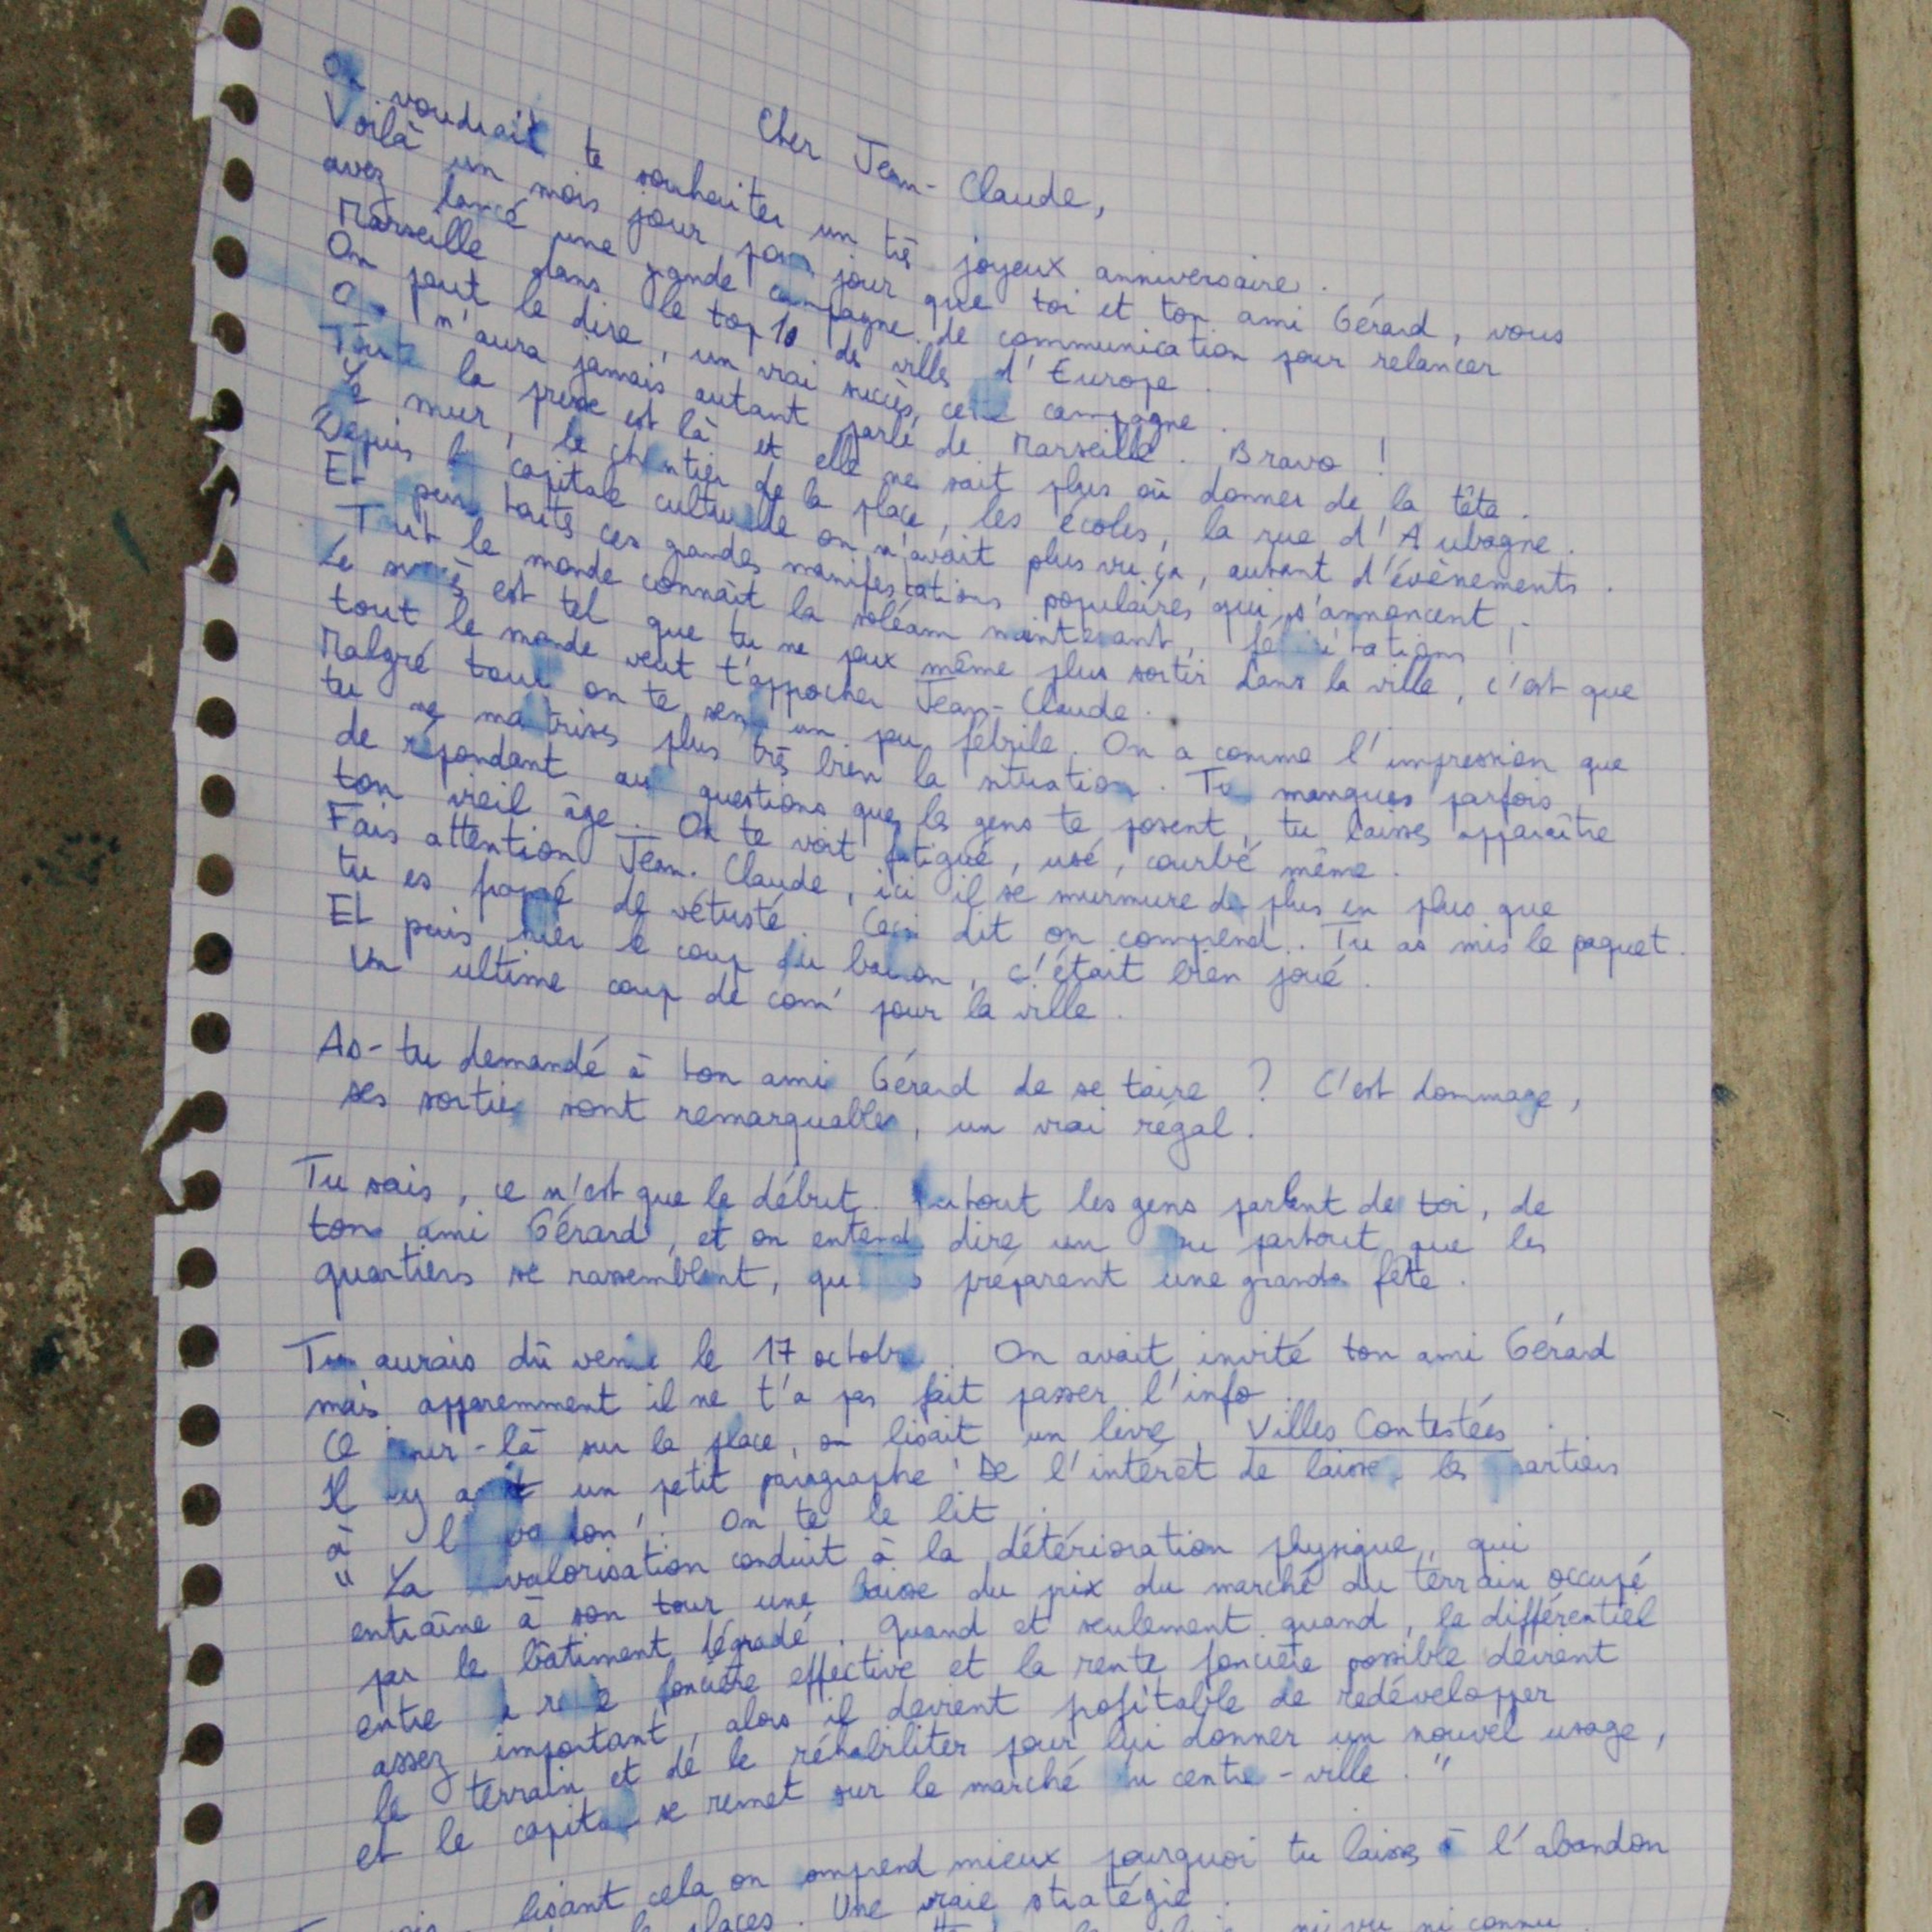 Cher Jean-Claude,
On voudrait te souhaiter un très joyeux anniversaire.
Voilà un mois jour pour jour que toi et ton ami Gérard, vous
avez lancé une grande campagne de communication pour relancer
Marseille dans le top 10 des villes d'Europe.
On peut le dire, un vrai succès, cette campagne.
On n'aura jamais autant parlé de Marseille. Bravo !
Toute la presse est là et elle ne sait plus où donner de la tête.
Le mur, le chantier de la place, les écoles, la rue d'Aubagne.
Depuis la capitale culturelle on n'avait plus vu ça, autant d'évènements.
Et puis toutes ces grandes manifestations populaires qui s'annoncent.
Tout le monde connaît la soléam maintenant, félicitations !
Le succès est tel que tu ne peux même plus sortir dans la ville, c'est que
tout le monde veut t'approcher Jean-Claude.
Malgré tout on te sent un peu fébrile. On a comme l'impression que
tu ne maîtrises plus très bien la situation. Tu manques parfois
de répondant aux questions que les gens te posent, tu laisses apparaître
ton vieil âge. On te voit fatigué, usé, courbé même.
Fais attention Jean-Claude, ici il se murmure de plus en plus que
tu es frappé de vétusté. Ceci dit on comprend. Tu as mis le paquet.
Et puis hier le coup du balcon, c'était bien joué.
Un ultime coup de com' pour la ville.
As-tu demandé à ton ami Gérard de se taire ? C'est dommage,
ses sorties sont remarquables, un vrai régal.
Tu sais, ce n'est que le début. Partout les gens parlent de toi, de
ton ami Gérard, et on entend dire un peu partout que les
quartiers se rassemblent, qu'ils préparent une grande fête.
Tu aurais dû venir le 17 octobre. On avait invité ton ami Gérard
mais apparemment il ne t'a pas fait passer l'info.
Ce jour-là sur la place, on lisait un livre, Villes Contestées.
Il y avait un petit paragraphe 'De l'intérêt de laisser les quartiers
à l'abandon'. On te le lit :
" La dévalorisation conduit à la détérioration physique, qui
entraîne à son tour une baisse du prix du marché du terrain occupé
par le bâtiment dégradé. Quand et seulement quand, le différentiel
entre la rente foncière effective et la rente foncière possible devient
assez important, alors il devient profitable de redévelopper
le terrain et de le réhabiliter pour lui donner un nouvel usage,
et le capital se remet sur le marché du centre-ville. "
lisant cela on comprend mieux pourquoi tu laisses à l'abandon
places. Une vraie stratégie.
ni vu ni connu.